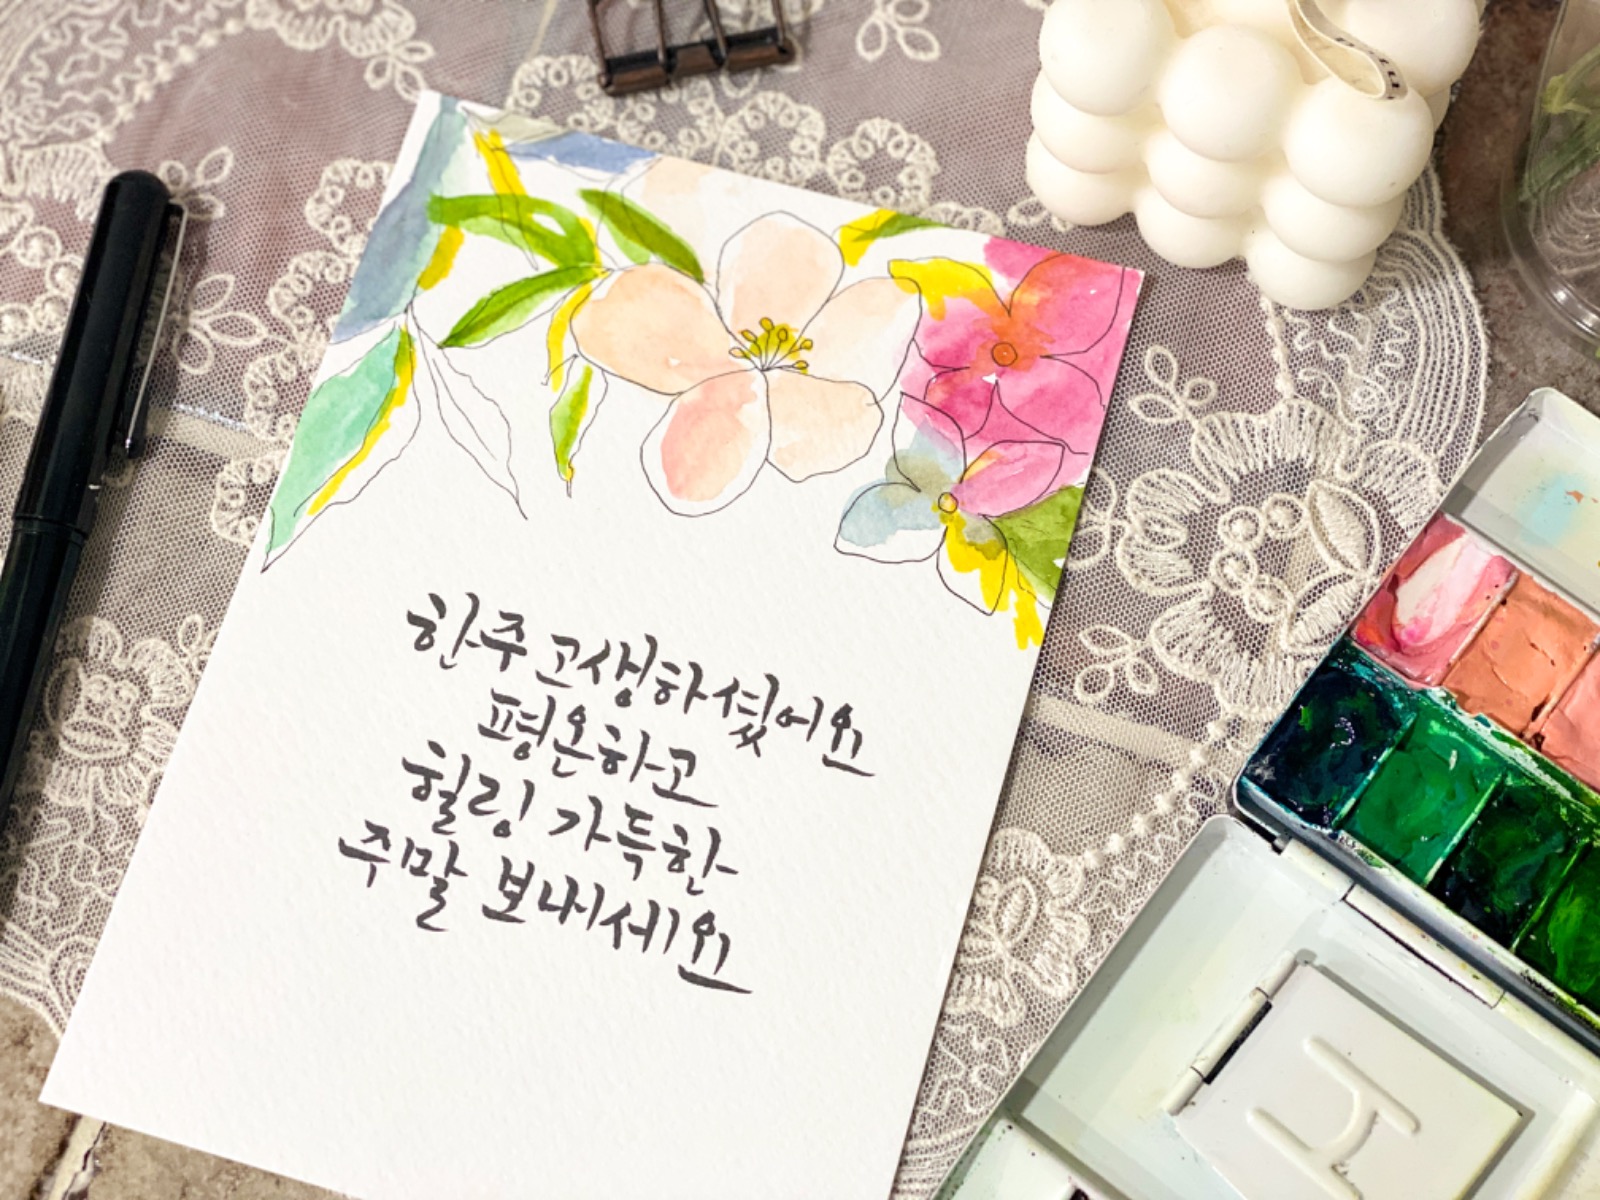 한주 고생하셨어요
평온하고
힐링 가득한
주말 보내세요
H